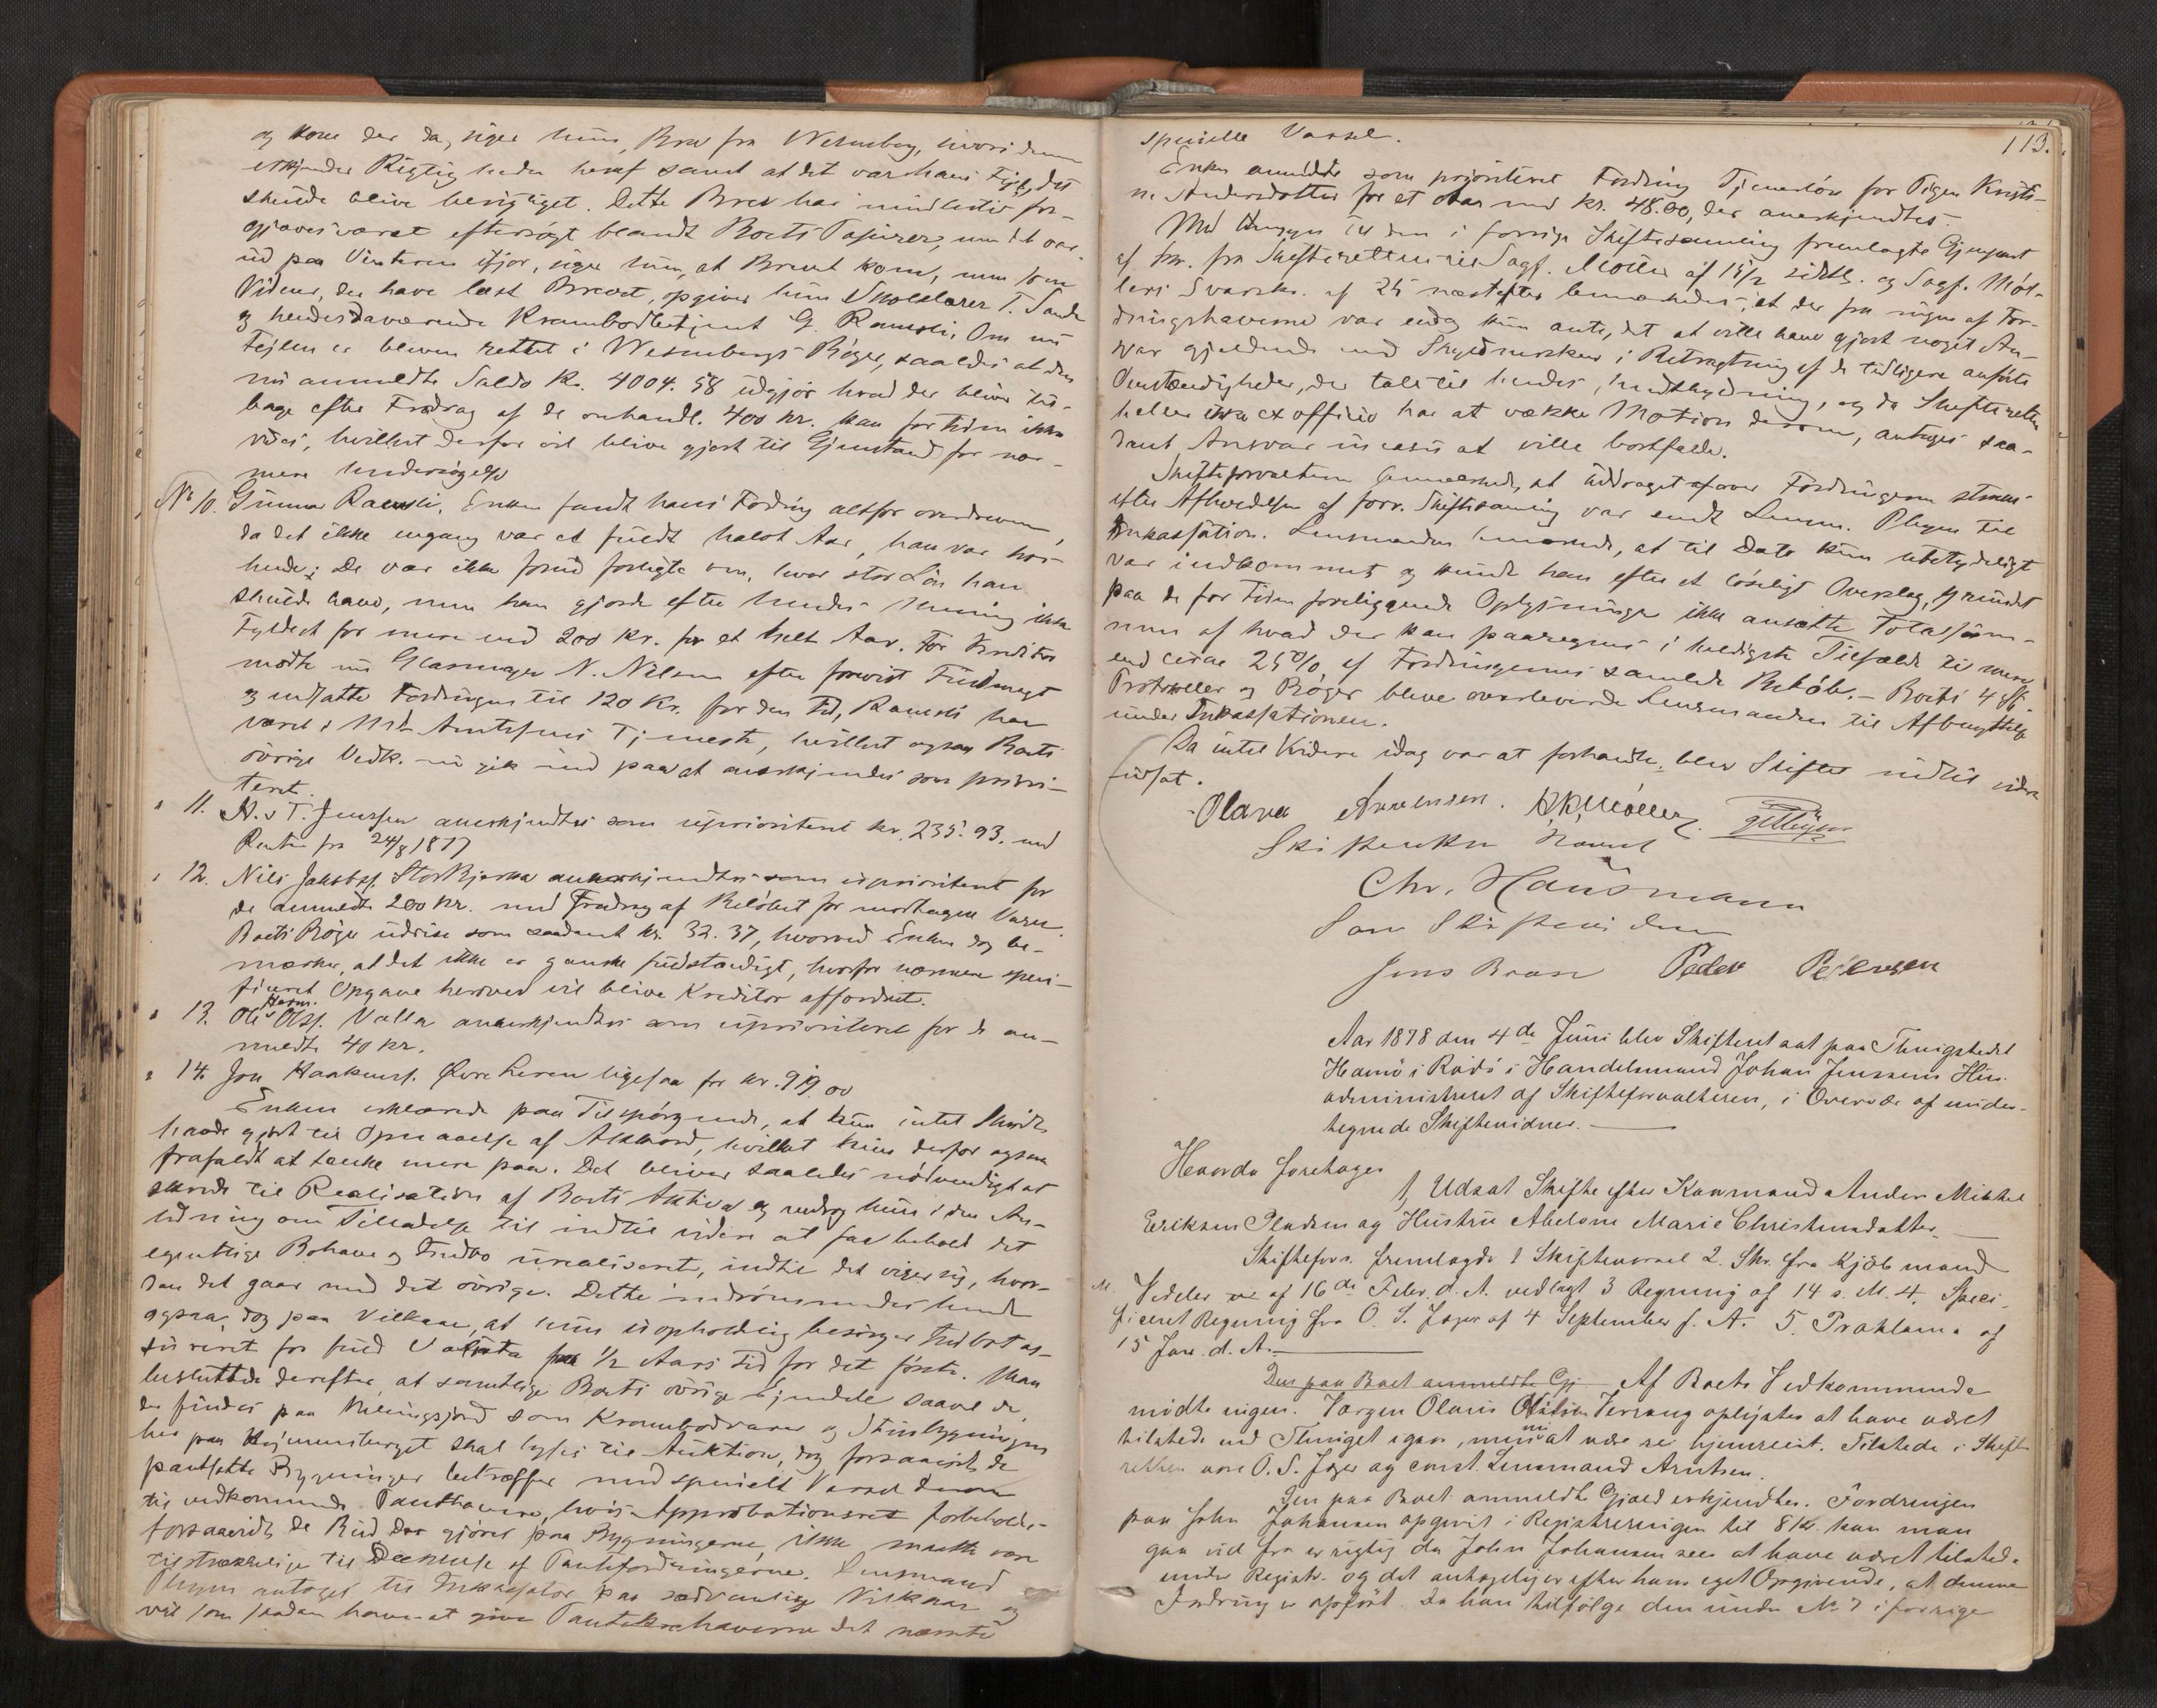 og kom der da, siger hun, Brev fra Wesenberg, hvori denne
erkjender Rigtigheden heraf samt at det var hans Fejl, det
skulde blive berigtiget. Dette Brev har imidlertid for-
gjæves været eftersøgt blandt Boets Papirer, men det var
ud paa Vinteren ifjor, siger hun, at Brevet kom, men som
Vidner, der have læst Brevet, opgiver hun Skolelærer T. Sande
og hendes daværende Krambodbetjent G. Ramsli. Om nu
Fejlen er bleven rettet i Wesenbergs Bøger, saaledes at den
nu anmeldte Saldo Kr. 4004.58 udgjør hvad der bliver til-
bage efter Fradrag af de omhandl. 400 Kr. kan for tiden ikke
vides, hvilket derfor vil blive gjort til Gjenstand for nær-
mere Undersøgelse
No 10. Gunnar Ramsli. Enken fandt hans Fodring altfor overdreven,
da det ikke engang var et fuldt halvt Aar, han var hos
hende; De var ikke forud forligte om, hvor stor Løn han
skulde have, men han gjorde efter hendes Mening ikke
Fyldest for mere end 200 Kr. for et helt Aar. For Kreditor
mødte nu Glarmager N. Nilsen efter forevist Fuldmagt
og nedsatte Fordringen til 120 Kr. for den Tid, Ramsli har
været i Md. Arntsens Tjeneste, hvilket ogsaa Boets
øvrige Vedk. nu gik ind paa at anerkjendes som priori-
teret.
" 11. A. & T. Jenssen anerkjendtes som uprioriteret kr. 235.93. med
Renter fra 24/8 1877
" 12. Nils Jakobs. Storkjersen anerkjendtes som uprioriteret for
de anmeldte 200 Kr. med Fradrag af Beløbet for modtagne Varer.
Boets Bøger udvise som saadant Kr. 32.37, hvorved Enken dog be-
mærker, at det ikke er ganske fuldstændigt, hvorfor nærmere speci-
ficeret Opgave herover vil blive Kreditor affordret.
" 13. Ole Herm. Ols. Valla anerkjendtes som uprioriteret for de an-
meldte 40 Kr.
" 14. Jon Haakens. Øvre Leren ligesaa for kr. 919.00
Enken erklærede paa Tilspørgende, at hun intet Skridt
havde gjort til Opnaaelse af Akkord, hvilket hun derfor ogsaa
frafaldt at tænke mere paa. Det bliver saaledes nødvendigt at
skride til Realisation af Boets Aktiva og androg hun i den An-
ledning om Tilladelse til indtil videre at faa beholde det
egentlige Bohave og Indbo urealiseret, indtil det viser sig, hvor-
dan det gaar med det øvrige. Dette indrømmedes hende
ogsaa, dog paa Vilkaar, at hun uopholdelig besørger Indboet as-
sureret for fuld Valuta paa 1/2 Aars Tid for det første. Man
besluttede derefter, at samtlige Boets øvrige Ejendele saavel de,
der findes paa som Krambodvarer og Husbygningen
her paa skal lyses til Auktion, dog forsaavidt de
pantsatte Bygninger betræffer med specielt Varsel derom
til vedkommende Panthavere, hvis Approbationsret forbeholdes-
forsaavidt de Bud der gjøres paa Bygningerne, ikke maatte være
tilstrækkelige til Dækkelse af Pantefordringerne. Lensmand
Plhym antoges til Inkassator paa sædvanlige Vilkaar og
vil som saadan have at give Pantehaverne det nævnte
113.
specielle Varsel.
Enken anmeldte som prioriteret Fordring Tjenerløn for Pigen Kristi-
ne Andersdatter for et Aar med kr. 48.00, der anerkjendtes.
Med Hensyn til den i forrige Skiftesamling fremlagte Gjenpart
af Skr. fra Skifteretten til Sagf. Møller af 15/2 sidstl. og Sagf. Møl-
lers Svarskr. af 25 næstefter bemærkedes, at der fra nogen af For-
dringshaverne var endog kun antydet at ville have gjort noget An-
svar gjældende mod Skyldnersken i Betragtning af de tidligere anførte
Omstændigheder, der tale til hendes Undskyldning, og da Skifteretten
heller ikke ex officio har at vække Motion derom, antoges saa-
dant Ansvar in casu at ville bortfalde.
Skifteforvalteren bemærkede, at Uddraget over Fordringerne straks
efter Afholdelsen af forr. Skiftesamling var sendt Lensm. Plhym til
Inkassation. Lensmanden bemærkede, at til Dato kun ubetydeligt
var indkommet, og kunde han efter et løseligt Overslag, grundet
paa de for Tiden foreliggende Oplysninger ikke ansætte Totalsum-
men af hvad der kan paaregnes i heldigste Tilfælde til mere
end circa 25% af Fordringernes samlede Beløb. - Boets 4
Protokoller og Bøger bleve overleverede Lensmanden til Afbenyttelse
under Inkassationen.
Da intet Videre idag var at forhandle, blev Skiftet indtil videre
udsat.
Olava Arentsen. Møller
Skifteretten hævet
Chr. Hausmann
Som Skiftevidner
Jens Peder Petersen
Aar 1878 den 4de Juni blev Skifteret sat paa Thingstedet
Havnø i Rødø i Handelsmand Johan Jenssens Hus
administreret af Skifteforvalteren, i Overvær af under-
tegnede Skiftevidner.
Hvorda foretages
1, Udsat Skifte efter Kaarmand Anders Mikkel
Eriksen og Hustru Abelone Marie Christensdatter
Skifteforv. fremlagde 1 Skiftevarsel 2. Skr. fra Kjøbmand
M. Vedeler af 16de Febr. d. A. vedlagt 3 Regning af 14 s. M. 4. Speci-
ficeret Regning fra O. S. Jæger af 4 September f. A. 5. Proklama af
15 Jan. d. A.
Den paa Boet anmeldte Gj Af Boets Vedkommende
mødte ingen. Værgen Olaus Olsen oplystes at have været
tilstede ved Thinget igaar, men nu at være hjemreist. Tilstede i Skifte-
retten vare O. S. Jæger og const. Lensmand Arntsen.
Den paa Boet anmeldte Gjæld erkjendtes. Fordringen
paa John Johansen opgivet i Registreringen til 8 Kr. kan man
gaa ud fra er rigtig da John Johansen sees at have været tilstede
under Registr. og det antagelig er efter hans eget Opgivende, at denne
Fordring er opført. Da han tilfølge den under No 7 i forrige